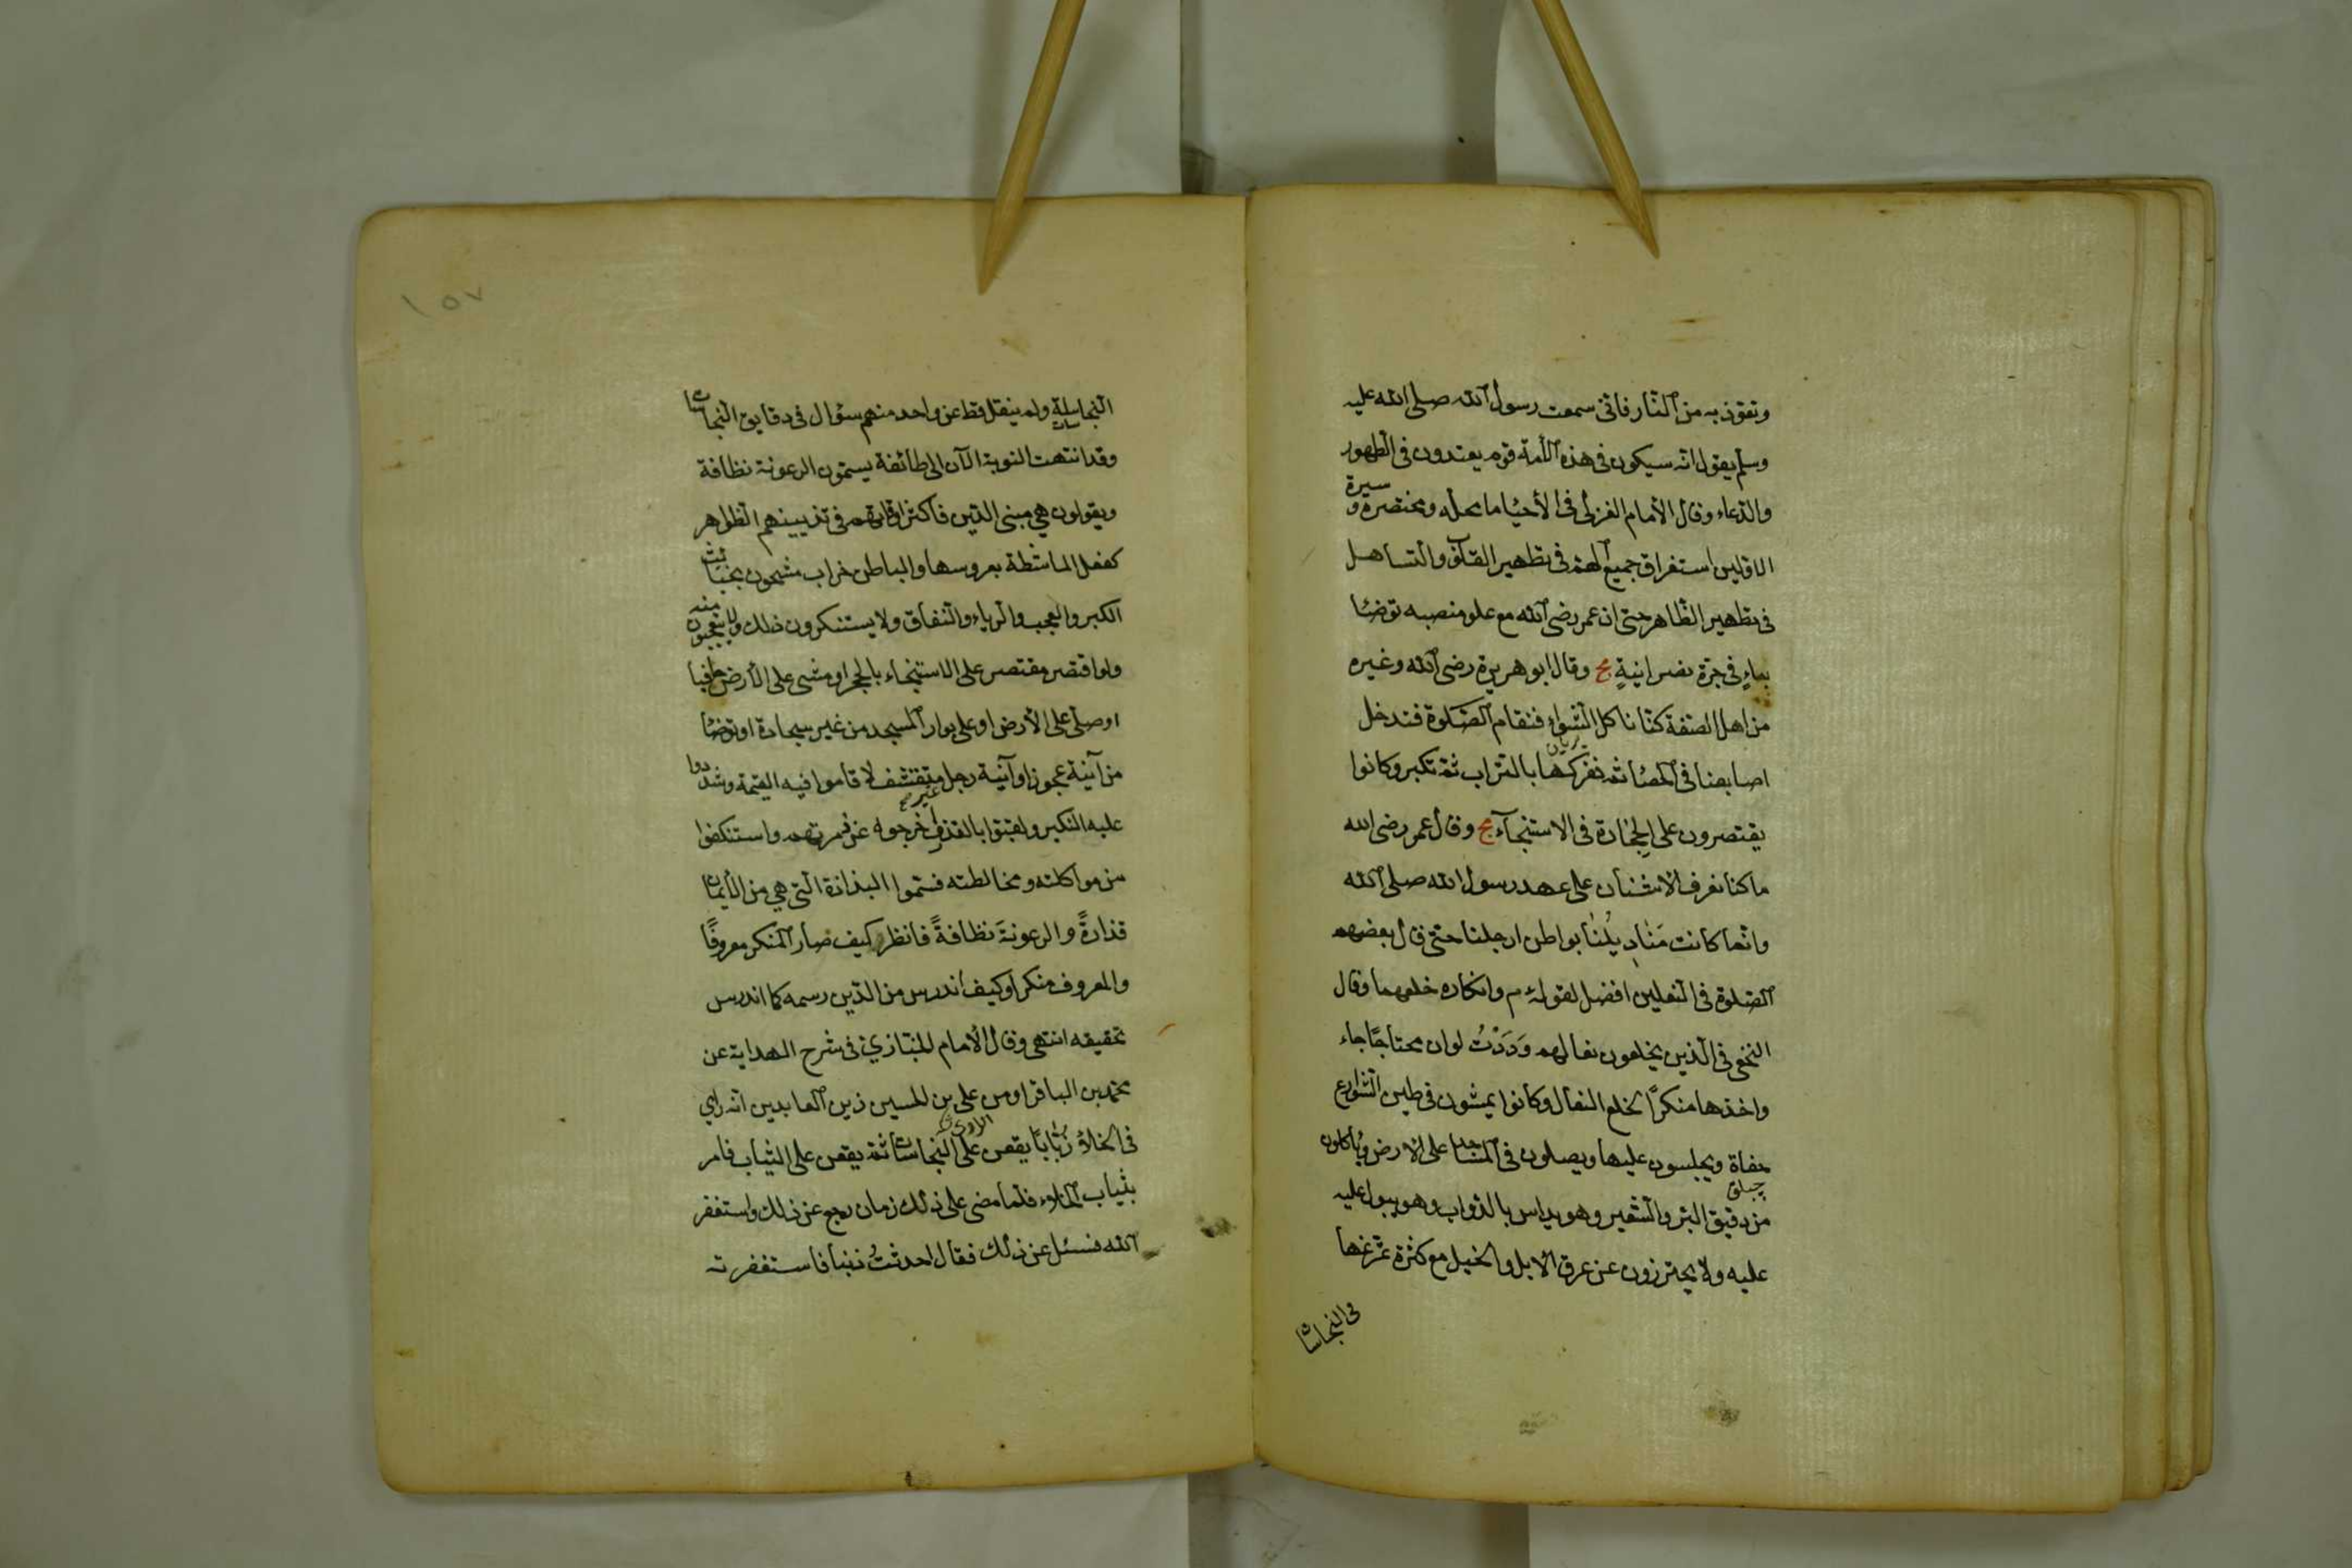 وتعوذ به من النار فانى سمعت رسول الله صلى الله عليه
وسلم يقول انه سيكون فى هذه الأمة قوم يعتدون فى الطهور
والدعاء وقال الأمام الغزالى فى الأحياء ما محله ومختصره وسيرة
الاولين استغراق جميع الهم فى تطهير القلوب والتساهل
فى تطهير الظاهر حتى ان عمر رضى الله مع علو منصبه توضئا
بماءٍ فى جرة نصرانيةٍ مح وقال ابو هريرة رضى الله وغيره
من اهل الصفة كنا ناكل الشواء فتقام الصلوة فندخل
اصابعنا فى الحصاء ثم نفركها بالتراب ثم نكبر وكانوا
يقتصرون على الحجارة فى الاستنجآء مح وقال عمر رضى الله
ما كنا نعرف الاشنان على عهد رسول الله صلى الله
وانما كانت مَنادِيلُنا بواطن ارجلنا حتى قال بعضهم
الصلوة فى النعلين افضل لقوله م وانكاره خلعهما وقال
النخعى فى الذين يخلعون نعالهم وَدَدْتُ لو ان محتاجًا جاء
واخذها منكرًا لخلع النعال وكانوا يمشون فى طين الشوارع
حفاة ويجلسون عليها ويصلون فى المساجد على الارض وياكلون
من دقيق البر والشعير وهو يداس بالدواب وهو يبول عليه
عليه ولا يحترزون عن عرق الابل والخيل مع كثرة تمرغها
فى النجاسات
١٥٧
النجاسة ولم ينقل قط عن واحد منهم سؤال فى دقايق النجاسات
وقد انتهت النوبة الآن الى طائفة يسمون الرعونة نظافة
ويقولون هي مبنى الدين فاكثر اوقاتهم فى تزيينهم الظواهر
كفعل الماشطة بعروسها والباطن خراب مشحون بخبائث
الكبر والعجب والرياء والنفاق ولا يستنكرون ذلك ولا يتعجبون منه
ولو اقتصر مقتصر على الاستنجاء بالحجر او مشى على الأرض حافيا
او صلى على الأرض او على بوار المسجد من غير سجادة او توضئا
من آنية عجوز او آنية رجل غير متقشف لاقاموا فيه القيمة وشددوا
عليه النكير ولقبوا بالقذر واخرجوه عن زمرتهم واستنكفوا
من مواكلته ومخالطته فسموا البذاذة التى هي من الأيمان
قذارةً والرعونةَ نظافةً فانظر كيف صار المنكر معروفًا
والمعروف منكرا وكيف اندرس من الدين رسمه كما اندرس
تحقيقه انتهى وقال الأمام الخبازي فى شرح الهداية عن
محمد بن الباقر او من على بن الحسين زين العابدين انه راي
فى الخلاء ذبابًا يقعن على النجاسات ثم يقعن على الثياب فامر
بثياب الخلاء فلما مضى على ذلك زمان رجع عن ذلك واستغفر
الله فسئل عن ذلك فقال احدثتُ ذنبا فاستغفرته